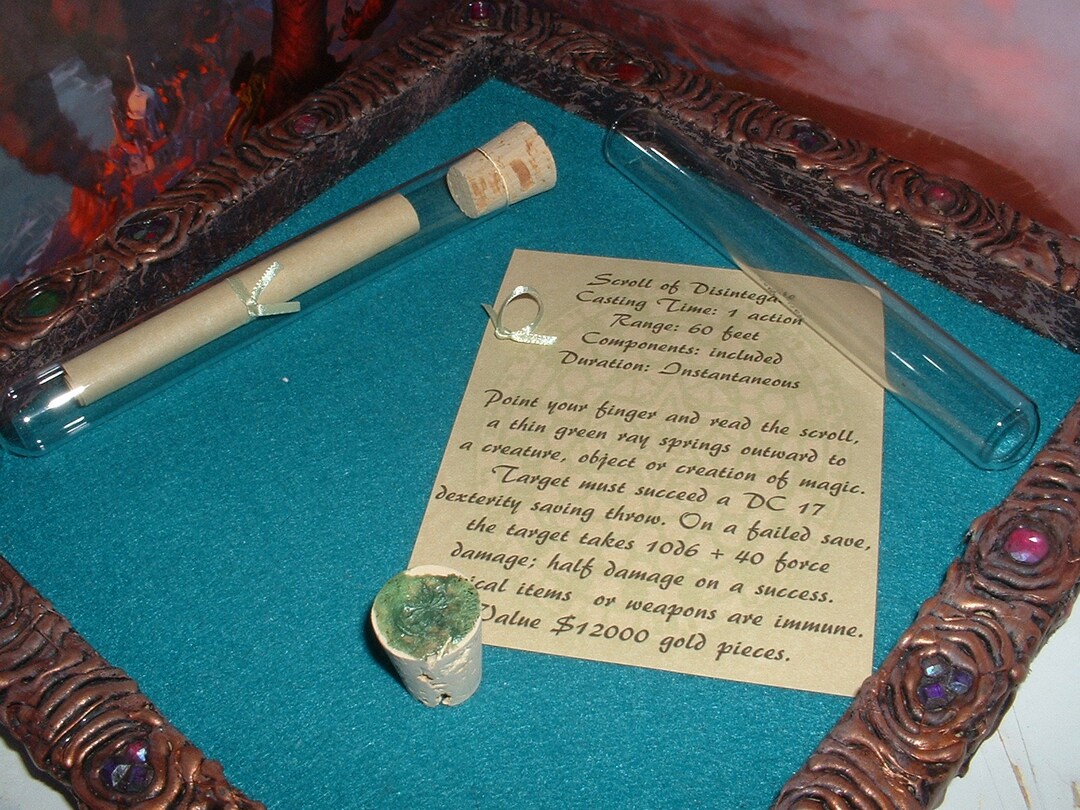 Scroll of Disintegate
Casting Time: 1 action
Range: 60 feet
Components: included
Duration: Instantaneous
Point your finger and read the scroll,
a thin green ray springs outward to
a creature, object or creation of magic.
Target must succeed a DC 17
dexterity saving throw. On a failed save,
the target takes 10d6 + 40 force
damage; half damage on a success.
items or weapons are immune.
Value $12000 gold pieces.